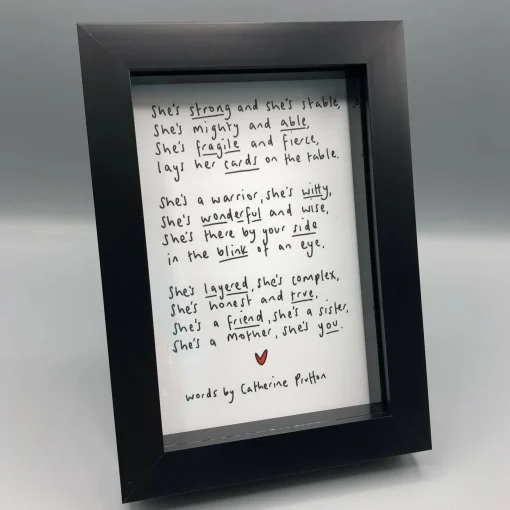 She's strong and she's stable,
She's mighty and able,
She's fragile and fierce,
lays her cards on the table.
She's a warrior, she's witty,
She's wonderful and wise,
She's there by your side
in the blink of an eye.
She's layered, she's complex,
She's honest and true,
She's a friend, she's a sister,
She's a Mother, she's you.
words by Catherine Prutton